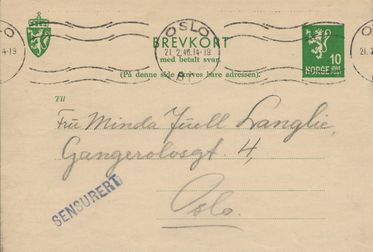 OSLO
21.2.46.14-19
BREVKORT
med betalt svar.
(På denne side skrives bare adressen).
10
NORGE
Til
Fru Minda Juell Langlie,
Gangerolvsgt. 4,
SENSURERT
Oslo.